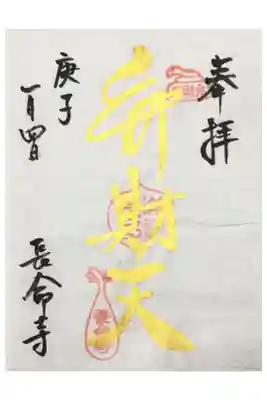 奉拝
弁財天
庚子
一月四日
長命寺